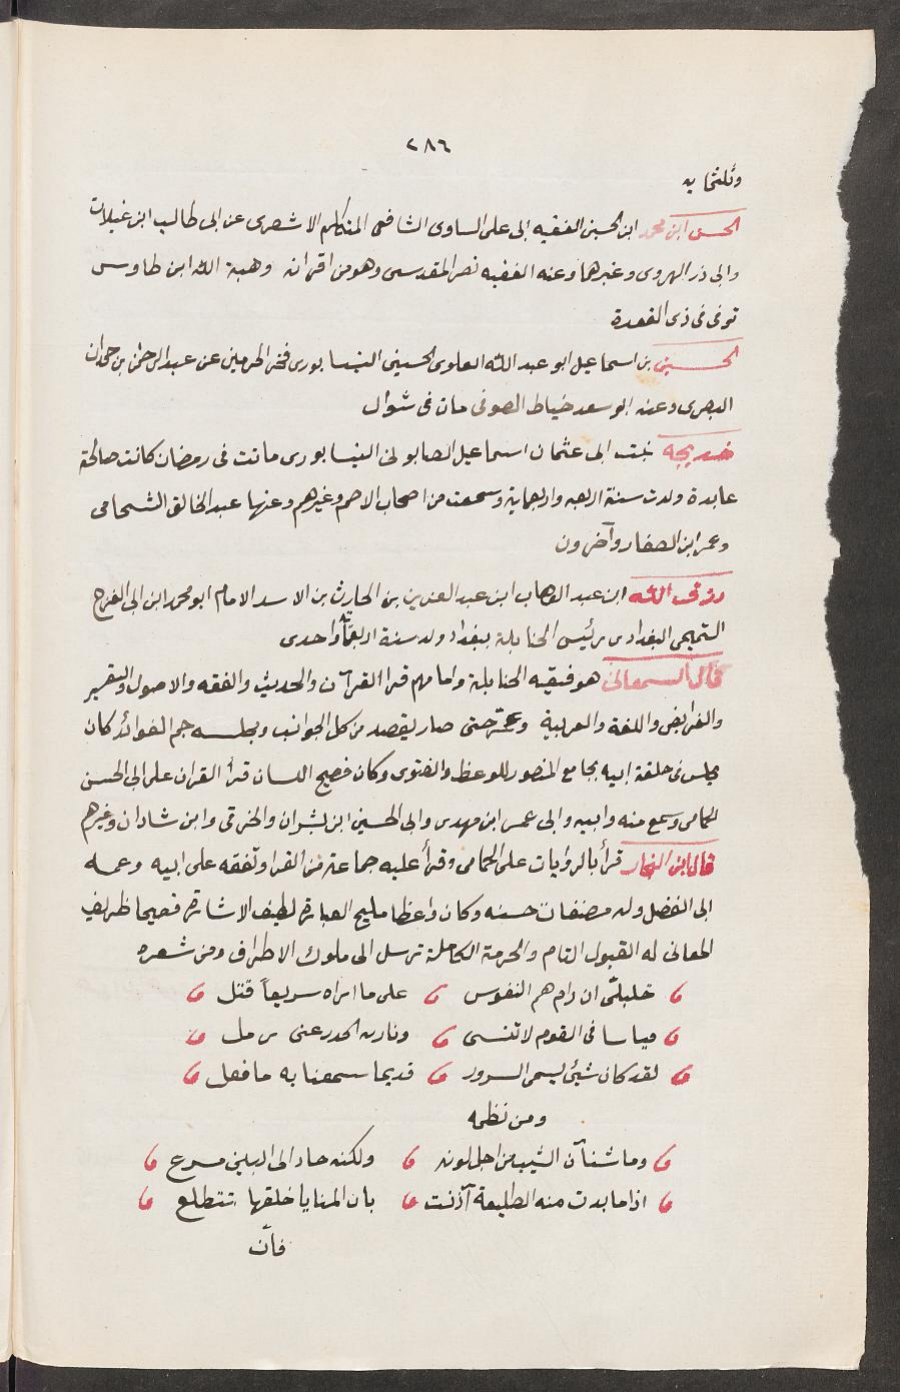 ٢٨٦
وثلثماية
الحسن ابن محمد ابن الحسن الفقيه ابى على الساوى الشافعى المتكلم الاشعرى عن ابى طالب ابن غيلان
وابى ذر الهروى وغيرهما وعنه الفقيه نصر المقدسى وهو من اقرانه وهبة الله ابن طاوس
توفى فى ذى القعدة
الحسين بن اسماعيل ابو عبد الله العلوى الحسينى النيسابورى فخر الحرمين عن عبد الرحمن بن حمدان
البصرى وعنه ابو سعد خياط الصوفى مات فى شوال
خديجه بنت ابى عثمان اسماعيل الصابونى النيسابورى ماتت فى رمضان كانت صالحة
عابدة ولدت سنة اربعه واربعماية وسمعت من اصحاب الاصم وغيرهم وعنها عبد الخالق الشحامى
وعمر ابن الصفار وآخرون
رزق الله ابن عبد الوهاب ابن عبد العزيز بن الحارث بن الاسد الامام ابو محمد ابن ابى الفرج
التميمى البغدادى رئيس الحنابلة ببغداد ولد سنة اربعمأية واحدى
قال السمعانى هو فقيه الحنابلة وامامهم قرا القرآن والحديث والفقه والاصول والتفسير
والفرايض واللغة والعربية وعمّر حتى صار يقصد من كل الجوانب ومجلسه جم الفوائد كان
يجلس فى حلقة ابيه بجامع المنصور للوعظ والفتوى وكان فصيح اللسان قرأ القران على ابى الحسن
الحمامى وسمع منه وابيه وابى عمر ابن مهدى وابى الحسين ابن بشران والخرقى وابن شادان وغيرهم
قال ابن النجار قرأ بالروايات على الحمامى وقرأ عليه جماعة من القرا وتفقه على ابيه وعمه
ابى الفضل وله مصنفات حسنه وكان واعظا مليح العبارة لطيف الاشارة فصيحا ظريف
المعانى له القبول التام والحرمة الكاملة ترسل الى ملوك الاطراف ومن شعره
خليلىّ ان رام هم النفوس على ما اراه سريعاً قتل
فياسا فى القوم لا تنسى رمل
لقد كان شيئ يسمى السرور قديما سمعنا به ما فعل
ومن نظمه
وما شنآن الشيب من اجل لونه ولكنه حاد الى البين مسرع
اذا ما بدت منه الطليعة آذنت بان المنايا خلفها تتطلع
فان